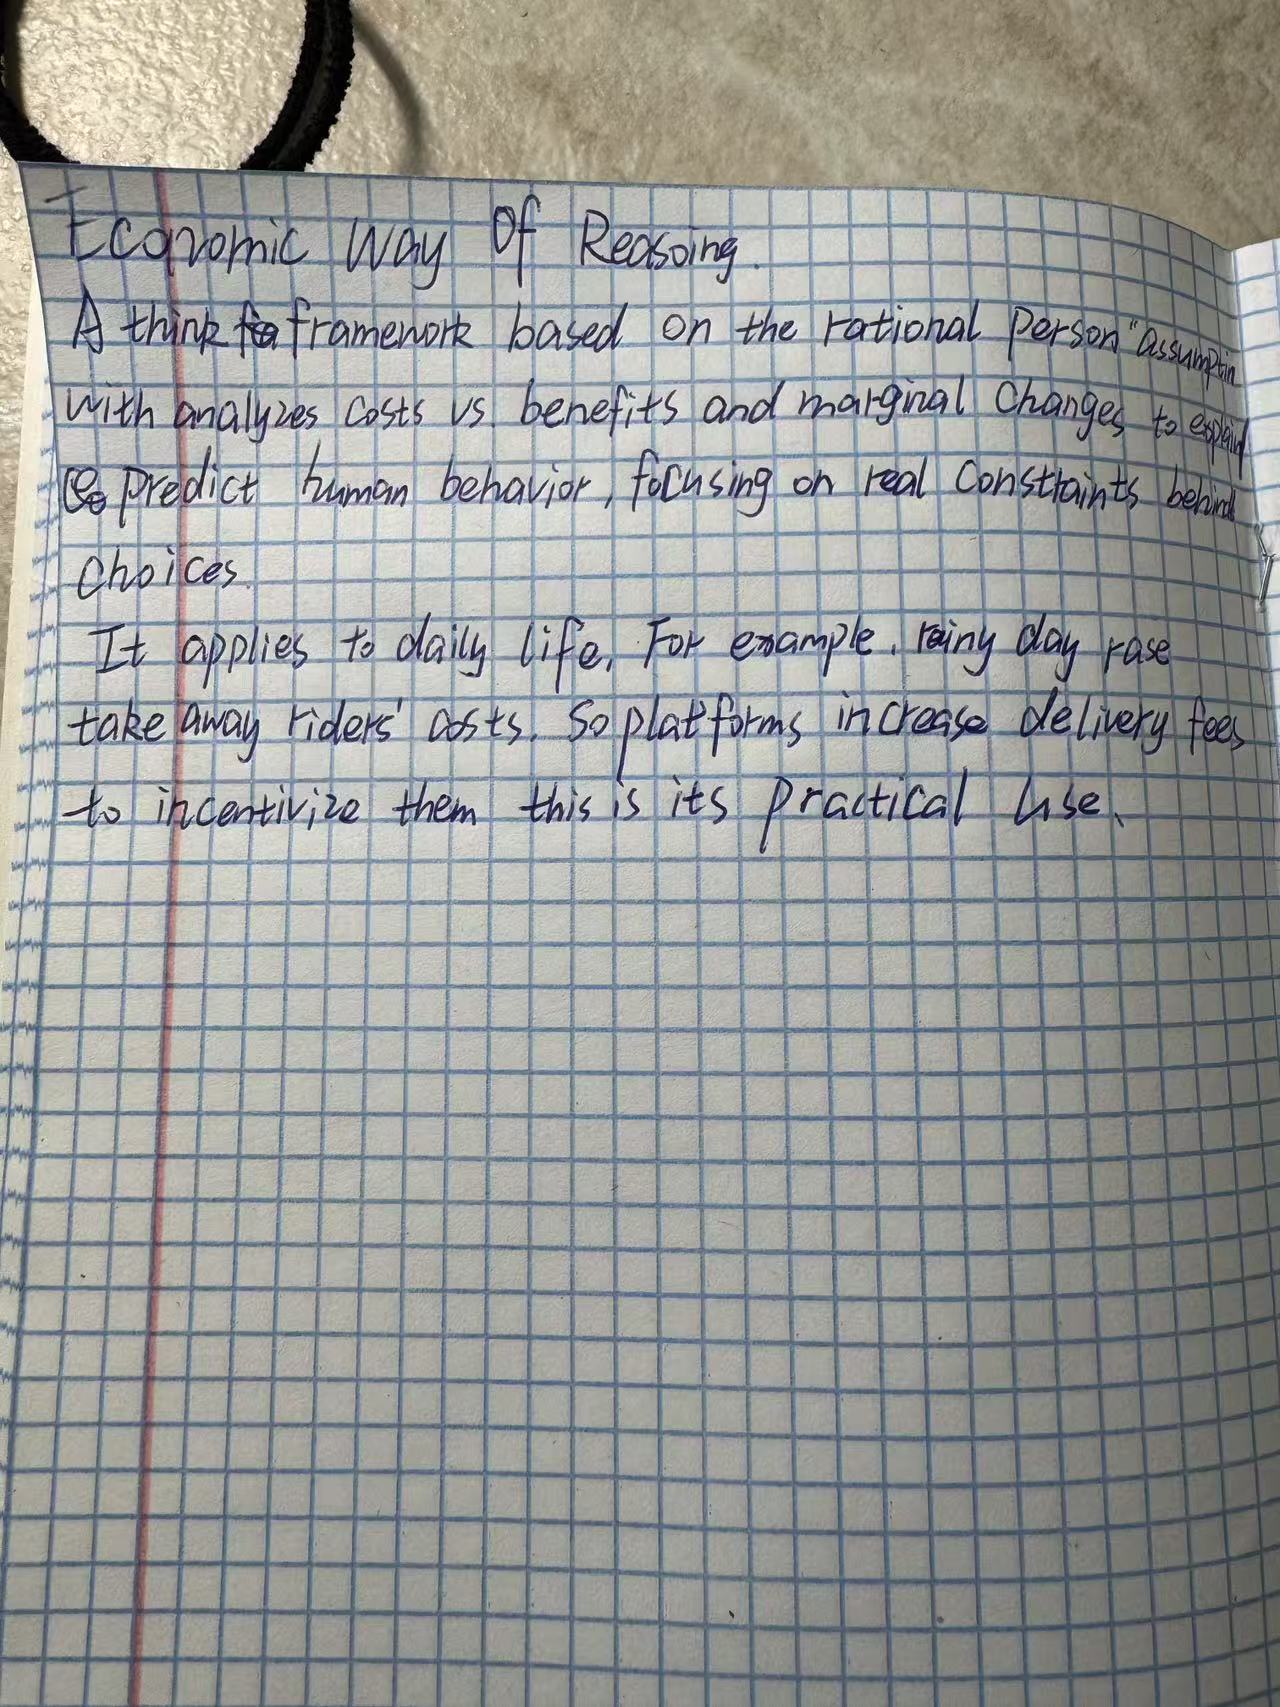 Economic Way Of Reasoing.
A think framework based on the rational person" assumptin
with analyzes costs vs. benefits and marginal changes to explain
predict human behavior, focusing on real constraints behind
choices.
It applies to daily life. For example, rainy day rase
take away riders' costs. So platforms increase delivery fees
to incentivize them this is its practical use.